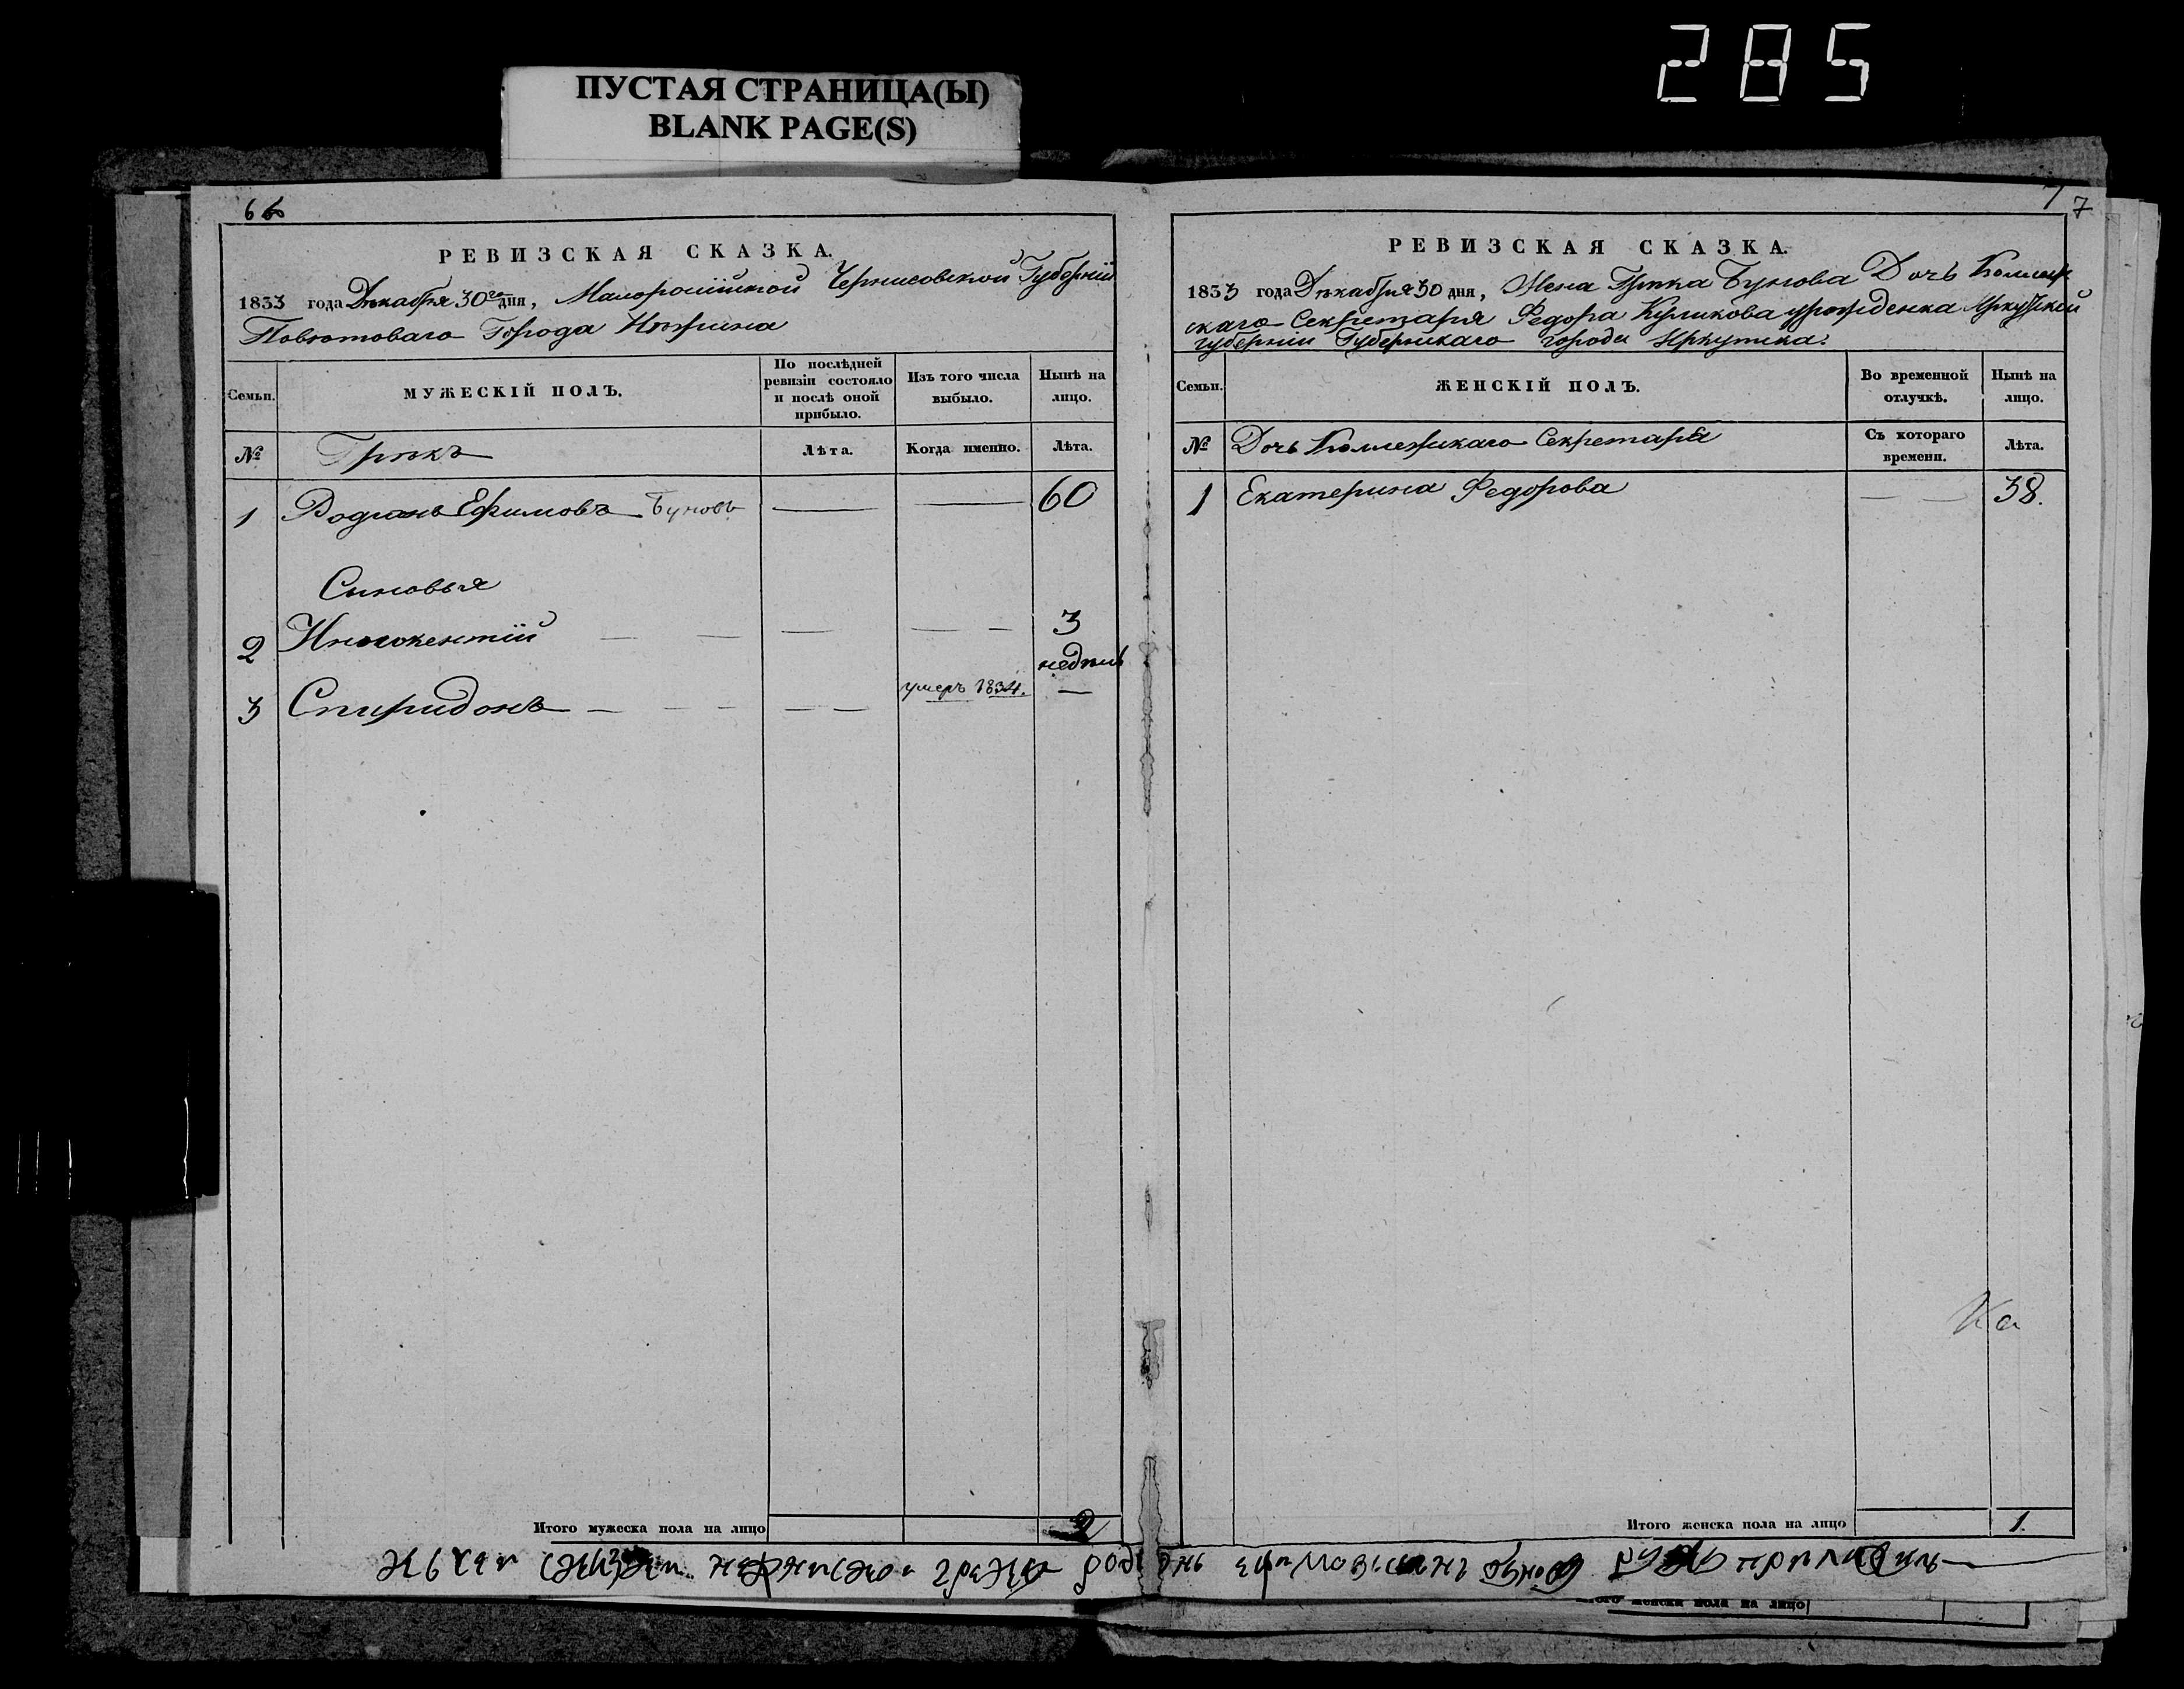 285
ПУСТАЯ СТРАНИЦА(Ы)
BLANK PAGE(S)
6
РЕВИЗСКАЯ СКАЗКА.
1833 года Декабря 30го дня, Малоросiйской Черниговской Губернiи
Повѣтоваго Города Нѣжина
Семьи.
МУЖЕСКIЙ ПОЛЪ.
По послѣдней ревизiи состояло и послѣ оной прибыло.
Изъ того числа выбыло.
Нынѣ на лицо.
№
Грѣкъ
Лѣта.
Когда именно.
Лѣта.
1 Родионъ Ефимовъ Буновъ — — 60
Сыновья
2 Инокентiй — — — — — 3
недѣли
3 Спиридонъ — — — — — умеръ 1834. —
Итого мужеска пола на лицо 2
7
7
РЕВИЗСКАЯ СКАЗКА.
1833 года Декабря 30 дня, Жена Грѣка Бунова Дочь Коллеж
скаго Секретаря Федора Куликова урожденка Иркутской
губернiи Губернскаго города Иркутска.
Семьи.
ЖЕНСКIЙ ПОЛЪ.
Во временной отлучкѣ.
Нынѣ на лицо.
№
Дочь Коллежскаго Секретаря
Съ котораго времени.
Лѣта.
1 Екатерина Федорова — — 38.
Ка
Итого женска пола на лицо 1.
нежинской грекъ родионъ буновъ руку приложилъ
женска пола на лицо